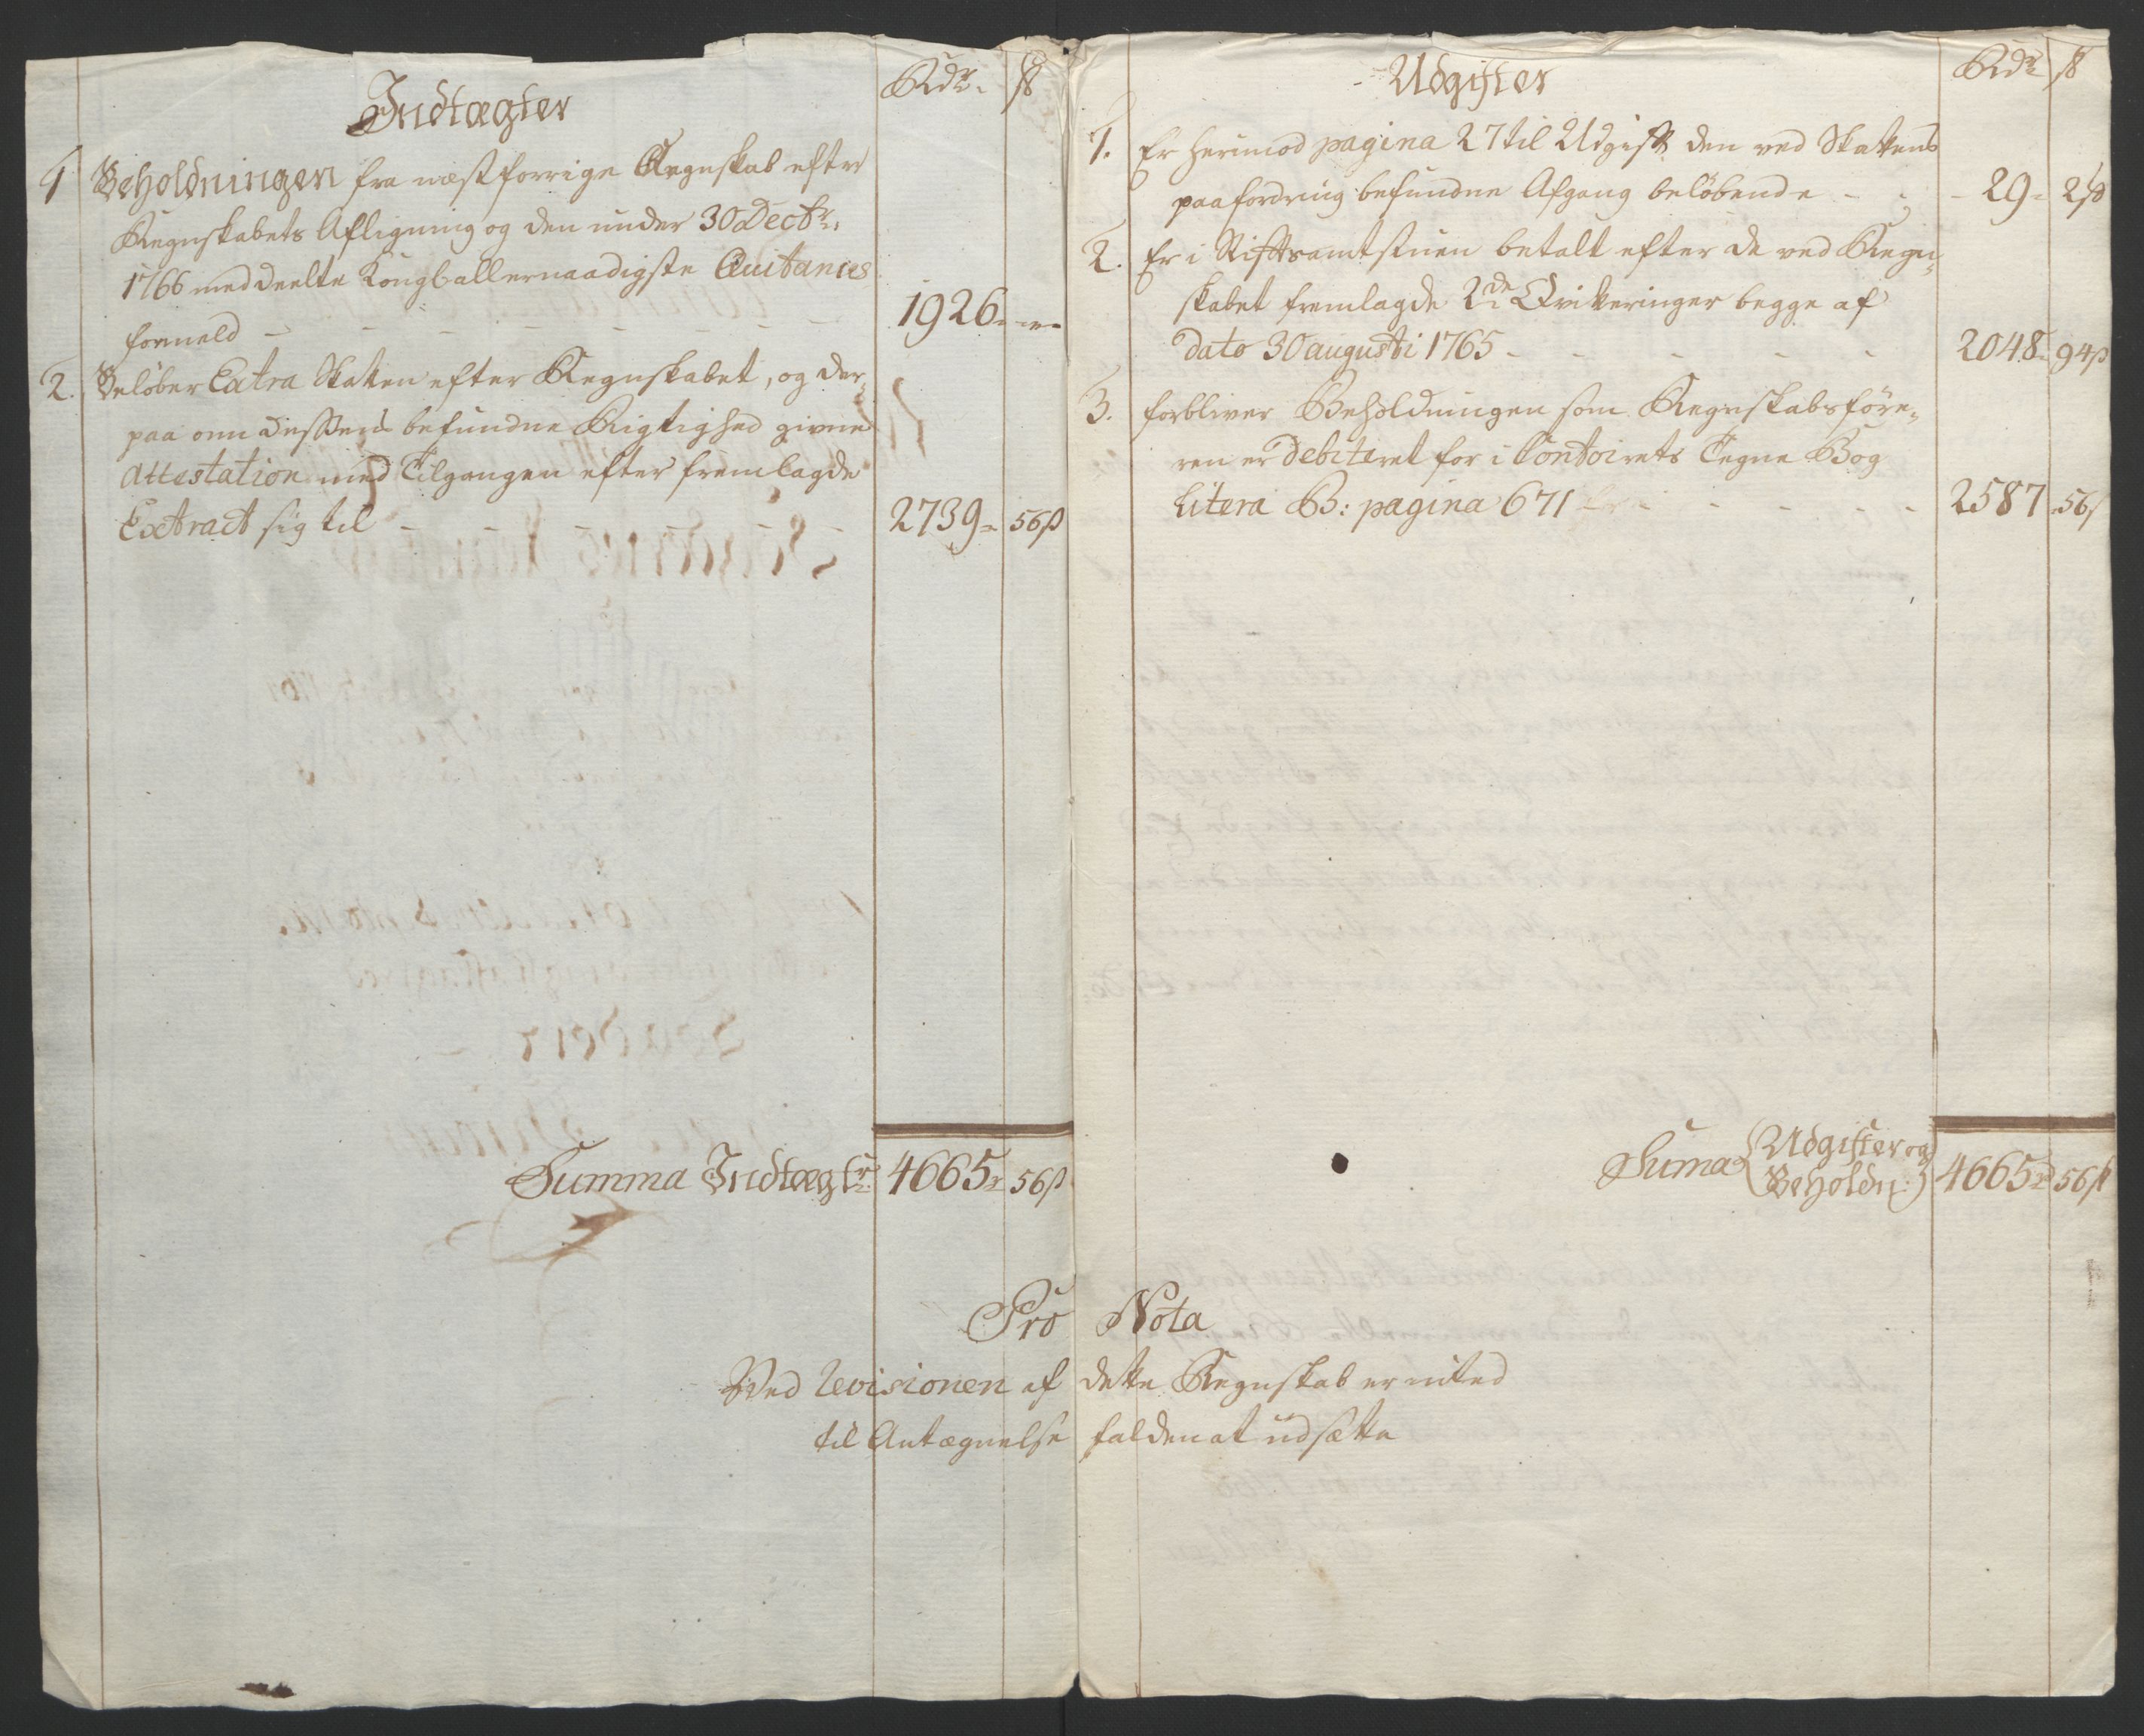 Indtægter
Rdr. ß
1 Beholdningen fra næstforrige Regnskab efter
Regnskabets Afligning og den under 30 Decbr.
1766 meddeelte Kongl. allernaadigste Quitances
formeld - - - - - - - 1926 - " -
2. Beløber Extra Skatten efter Regnskabet, og der-
paa om dessen befundne Rigtighed givne
Attestation med Tilgangen efter fremlagde
Extract sig til - - - - - 2739 - 56 ß
Summa Indtægtr. 4665 r 56 ß
Udgifter
Rdr. ß
1. Er herimod pagina 27 til Udgift den ved Skattens
paafordring befundne Afgang beløbende - - - 29 - 2 ß
2. Er i Stiftamtstuen betalt efter de ved Regn-
skabet fremlagde 2de Qvitteringer begge af
dato 30 augusti 1765 - - - - - 2048 - 94 ß
3. forbliver Beholdningen som Regnskabsføre-
ren er Debiteret for i Contoirets Tegne Bog
Litera B: pagina 671 - - - - - 2587 - 56 ß
Suma Udgifter og
Beholdn: 4665 rd 56 ß
Pro Nota
Ved Revisionen af dette Regnskab er inted
til Antægnelse falden at udsætte